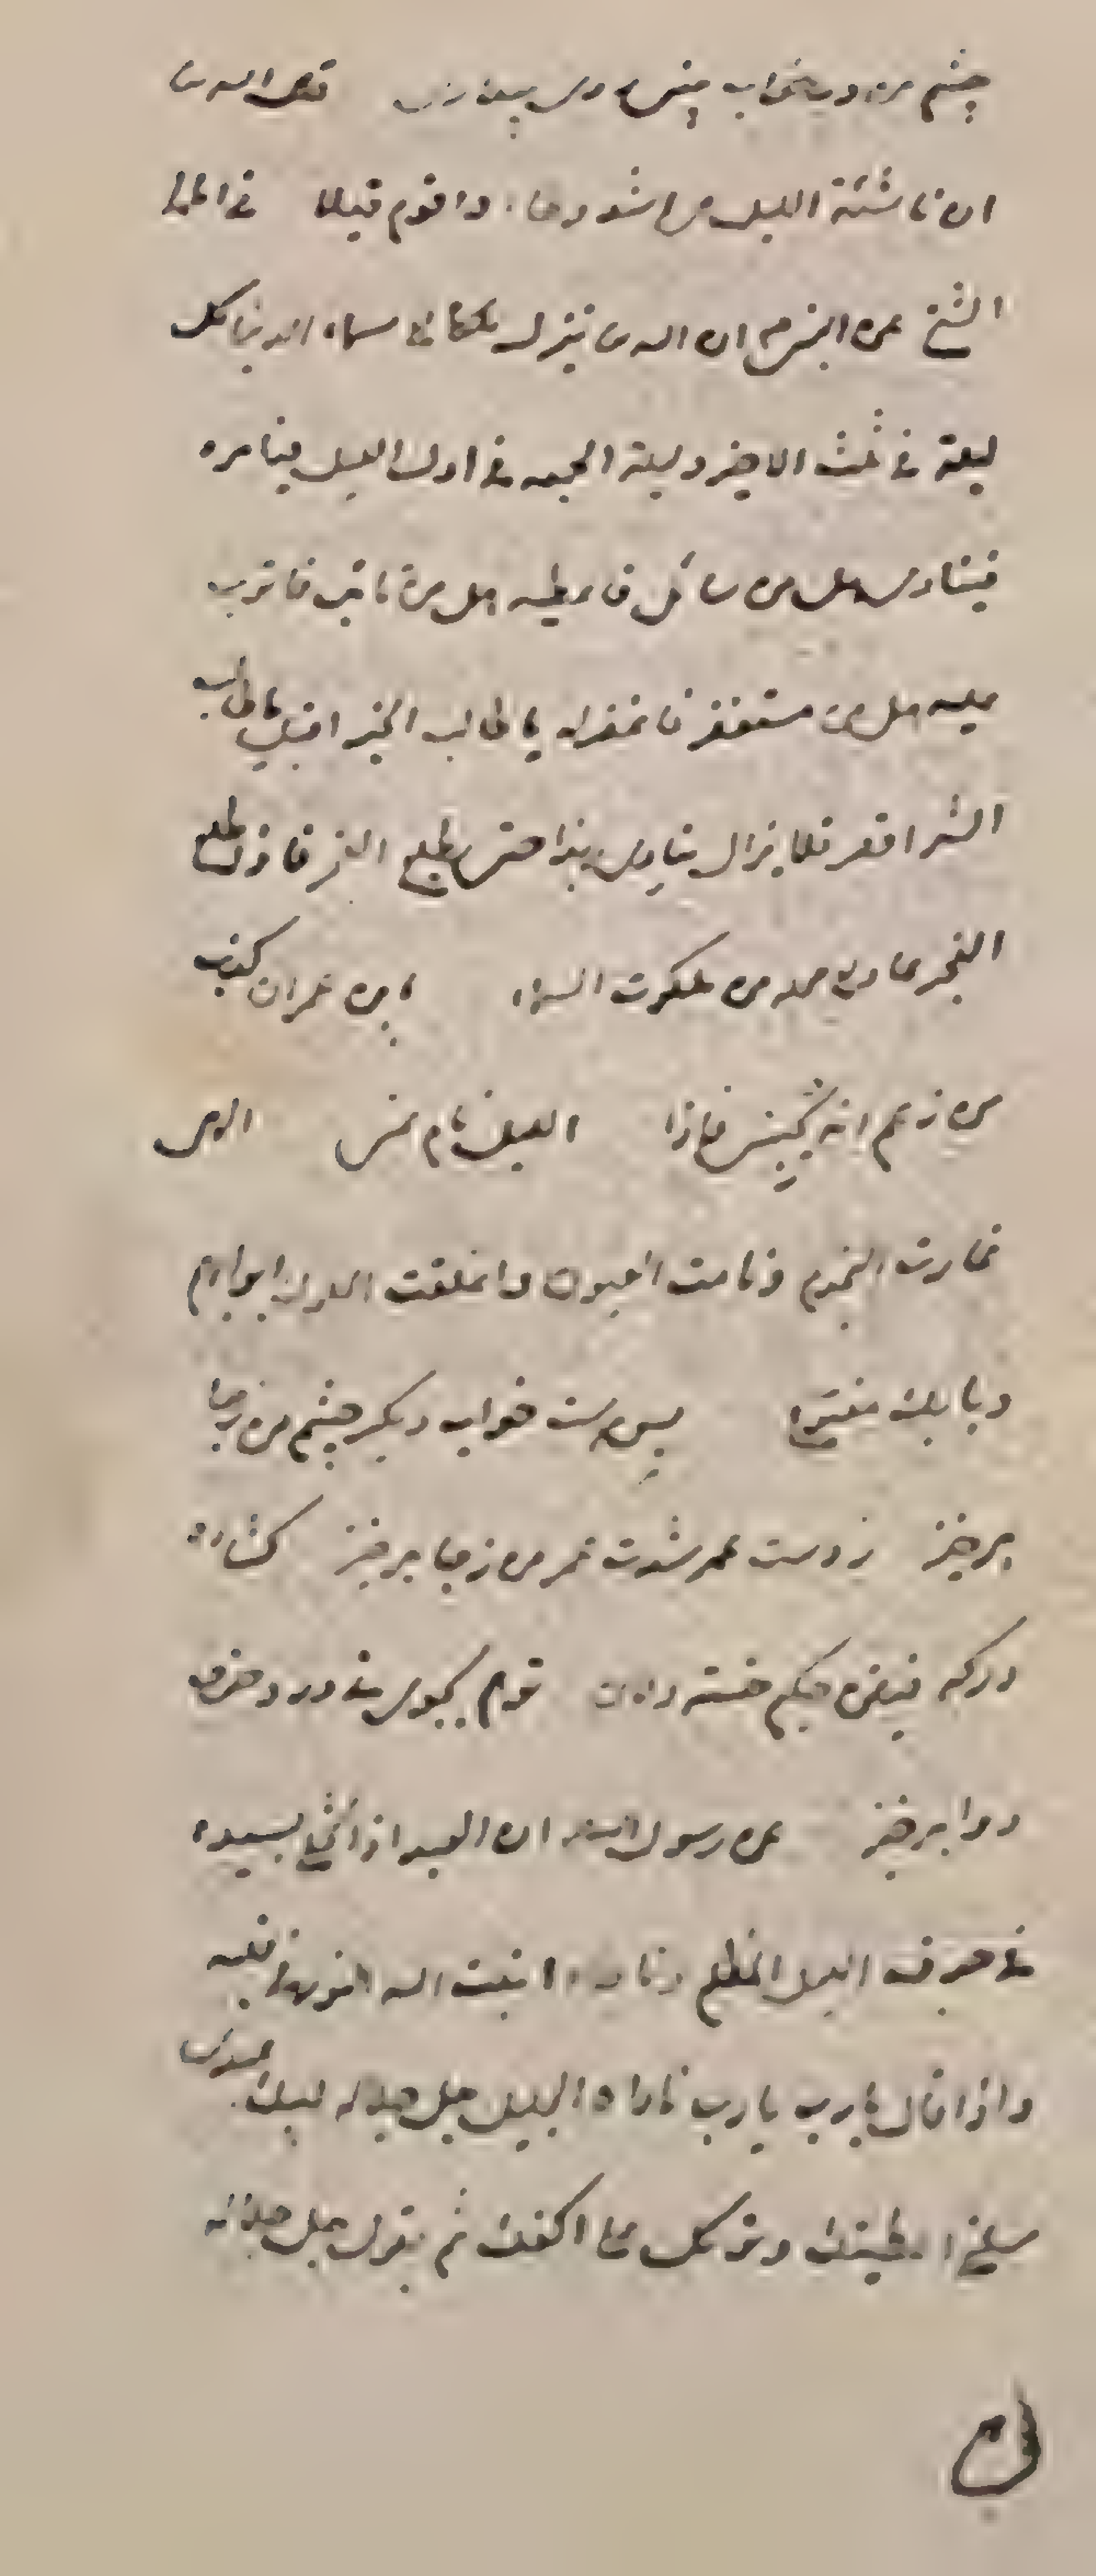 چشم من در خواب
ان ناشئة الليل هی اشد وطا و اقوم قيلا فی
الشیخ عن ان الله تعالی ينزل ملكا الی سماء الدنيا كل
ليلة فی ثلث الاخير و ليلة الجمعه فی اول الليل فيامره
فينادی هل من سائل فاعطيه هل من تائب فاتوب
عليه هل من مستغفر فاغفر له يا طالب الخير اقبل يا طالب
الشر اقصر فلا يزال ينادی بهذا حتی يطلع الفجر فاذا طلع
الفجر عاد الی محله من ملكوت السماء يابن عمران كذب
من زعم انه يحبنی فاذا الليل نام عنی الهی
غارت النجوم و نامت العيون و اغلقت الملوك ابوابهم
و بابك مفتوح بس است خواب دیگر چشم من ز جا
برخیز ز دست عمر شدت عمر من ز جا برخیز گشاده
درگه فیض حکیم خسته دلان
دوا برخیز عن رسول الله ان العبد اذا تخلی بسيده
فی جوف الليل المظلم و ناجاه اثبت الله النور فی قلبه
و اذا قال يا رب يا رب ناداه الجليل جل جلاله لبيك عبدی
سلنی اعطيتك و توكل علی اكفك ثم يقول جل جلاله